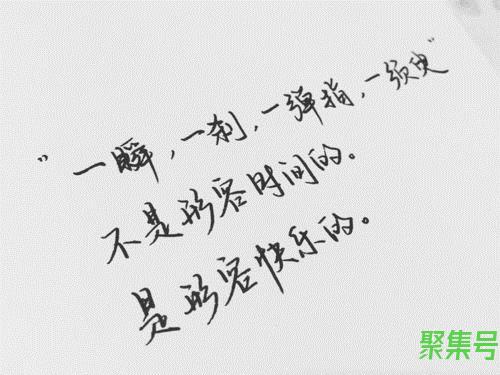 "一瞬，一刹，一弹指，一须臾"
不是形容时间的。
是形容快乐的。
聚集号